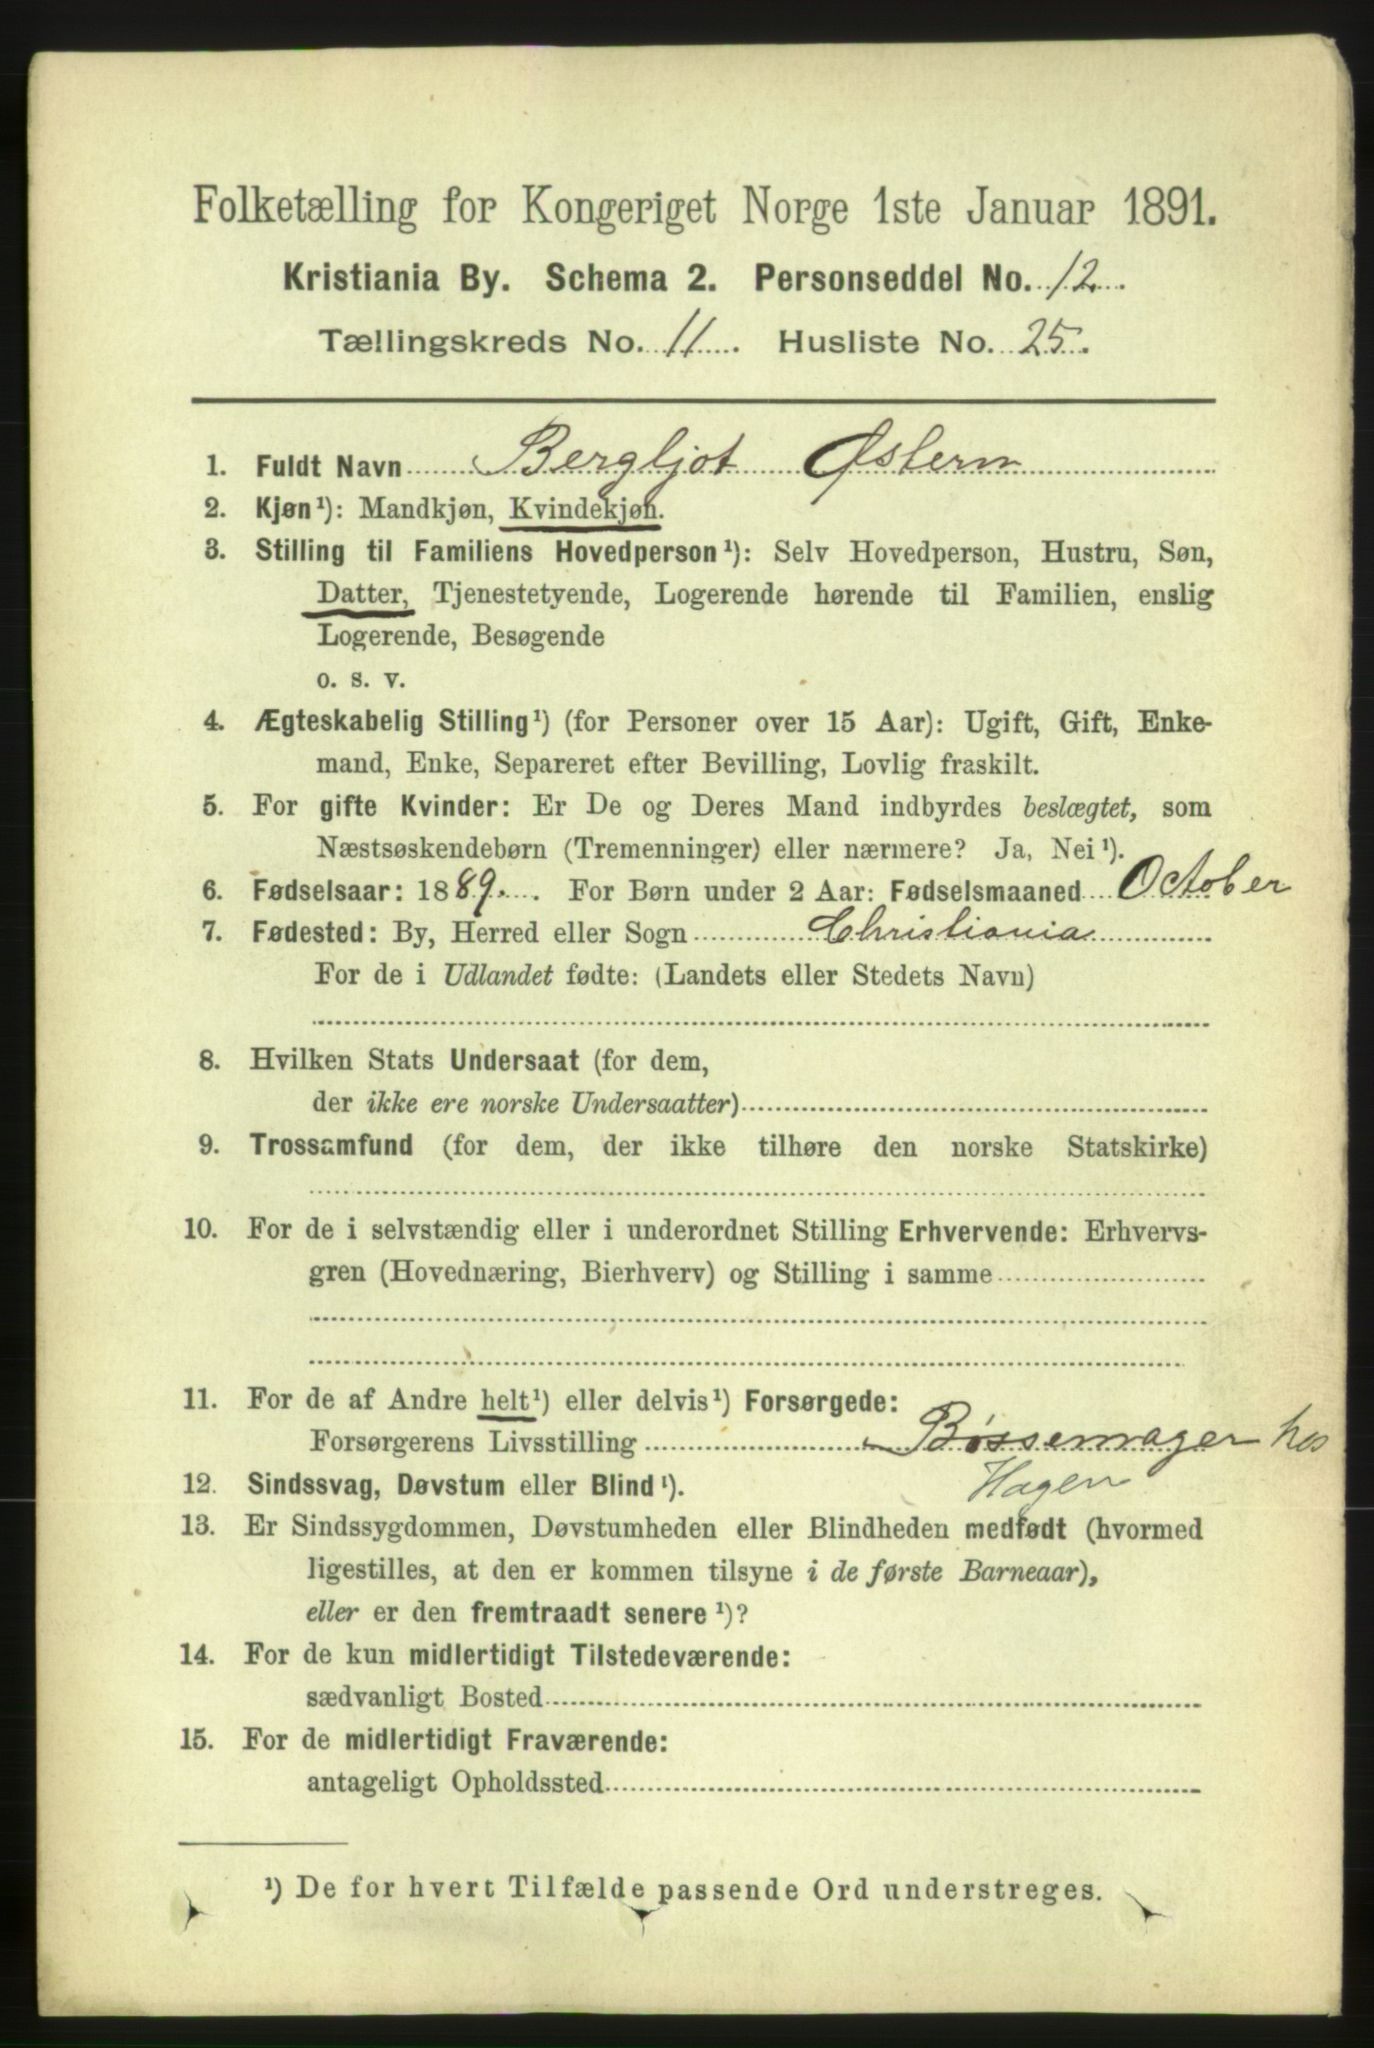 Folketælling for Kongeriget Norge 1ste Januar 1891.
Kristiania By. Schema 2. Personseddel No. 12.
Tællingskreds No. 11. Husliste No. 25.
1. Fuldt Navn Bergljot Østern
2. Kjøn¹): Mandkjøn, Kvindekjøn.
3. Stilling til Familiens Hovedperson¹): Selv Hovedperson, Hustru, Søn,
Datter, Tjenestetyende, Logerende hørende til Familien, enslig
Logerende, Besøgende
o. s. v.
4. Ægteskabelig Stilling¹) (for Personer over 15 Aar): Ugift, Gift, Enke-
mand, Enke, Separeret efter Bevilling, Lovlig fraskilt.
5. For gifte Kvinder: Er De og Deres Mand indbyrdes beslægtet, som
Næstsøskendebørn (Tremenninger) eller nærmere? Ja, Nei¹).
6. Fødselsaar: 1889. For Børn under 2 Aar: Fødselsmaaned October
7. Fødested: By, Herred eller Sogn Christiania
For de i Udlandet fødte: (Landets eller Stedets Navn)
8. Hvilken Stats Undersaat (for dem,
der ikke ere norske Undersaatter)
9. Trossamfund (for dem, der ikke tilhøre den norske Statskirke)
10. For de i selvstændig eller i underordnet Stilling Erhvervende: Erhvervs-
gren (Hovednæring, Bierhverv) og Stilling i samme
11. For de af Andre helt¹) eller delvis¹) Forsørgede:
Forsørgerens Livsstilling Bøssemager hos
Hagen
12. Sindssvag, Døvstum eller Blind¹).
13. Er Sindssygdommen, Døvstumheden eller Blindheden medfødt (hvormed
ligestilles, at den er kommen tilsyne i de første Barneaar),
eller er den fremtraadt senere¹)?
14. For de kun midlertidigt Tilstedeværende:
sædvanligt Bosted
15. For de midlertidigt Fraværende:
antageligt Opholdssted
¹) De for hvert Tilfælde passende Ord understreges.